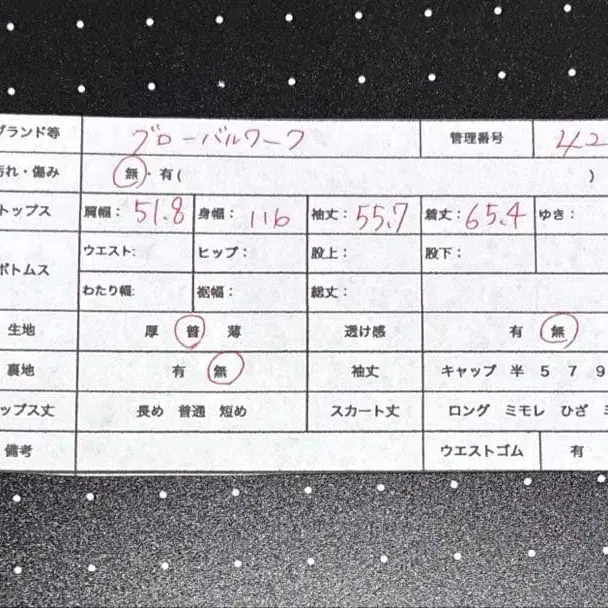 ブランド等 グローバルワーク 管理番号 42
汚れ・傷み 無・有( )
トップス 肩幅: 51.8 身幅: 116 袖丈: 55.7 着丈: 65.4 ゆき:
ボトムス ウエスト: ヒップ: 股上: 股下:
わたり幅: 裾幅: 総丈:
生地 厚 普 薄 透け感 有 無
裏地 有 無 袖丈 キャップ 半 5 7 9
ップス丈 長め 普通 短め スカート丈 ロング ミモレ ひざ
備考 ウエストゴム 有